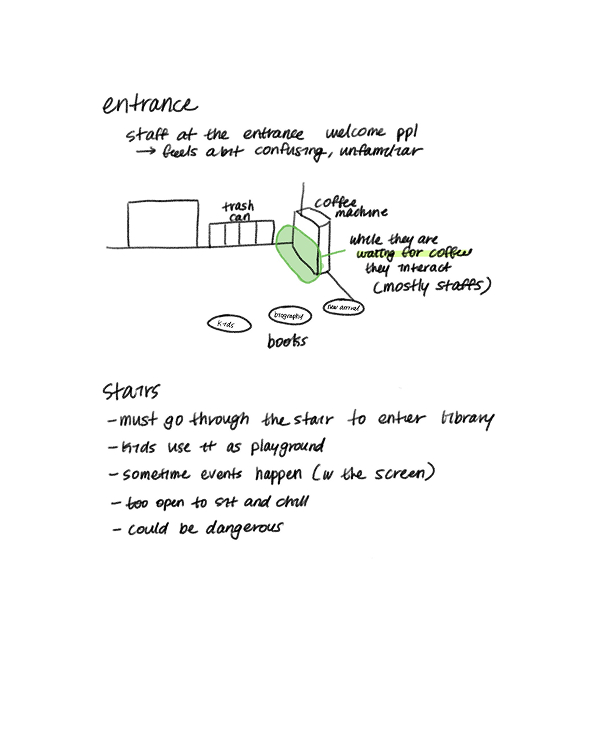 entrance
staff at the entrance welcome ppl
→ feels a bit confusing, unfamiliar
trash
can
coffee
machine
while they are
waiting for coffee
they interact
(mostly staffs)
kids
biography
new arrival
books
stairs
- must go through the stair to enter library
- kids use it as playground
- sometime events happen (w the screen)
- too open to sit and chill
- could be dangerous